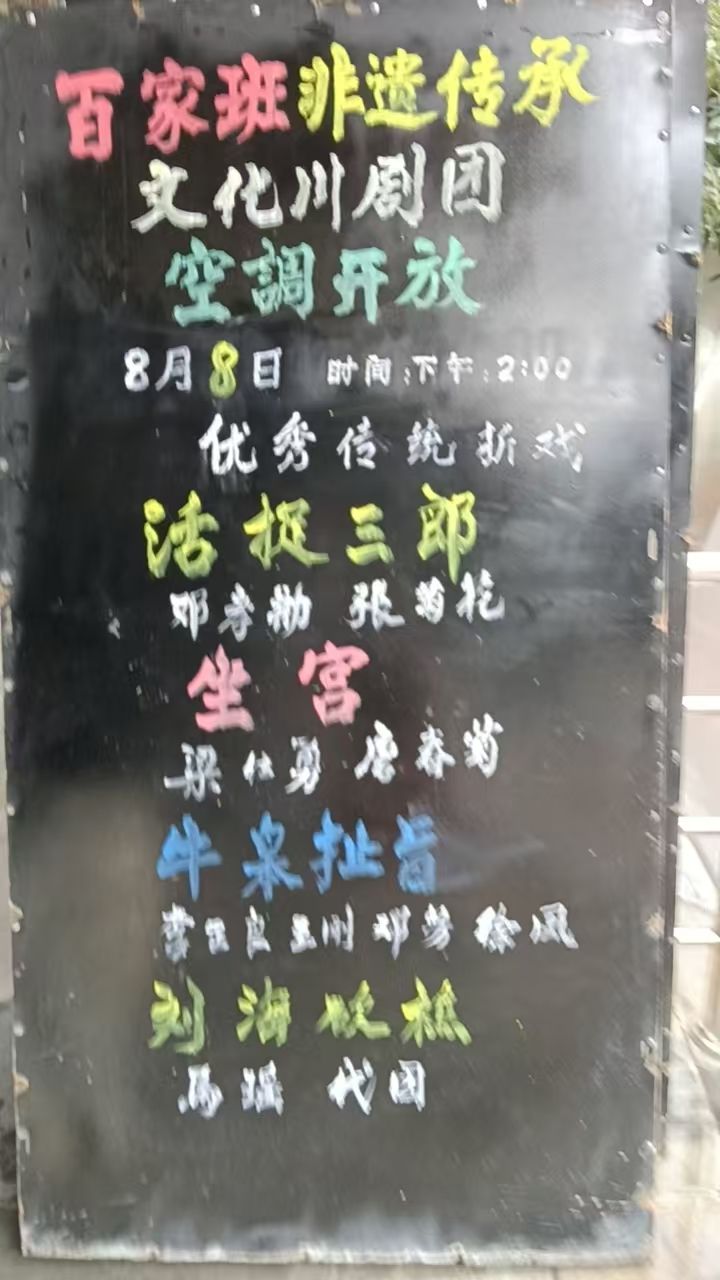 百家班非遗传承
文化川剧团
空調开放
8月8日 时间:下午:2:00
优秀传统折戏
活捉三郎
邓孝勋 张菊花
坐宫
梁仕勇 唐春菊
牛皋扯旨
王刚 邓芳 徐凤
刘海砍樵
马瑶 代团